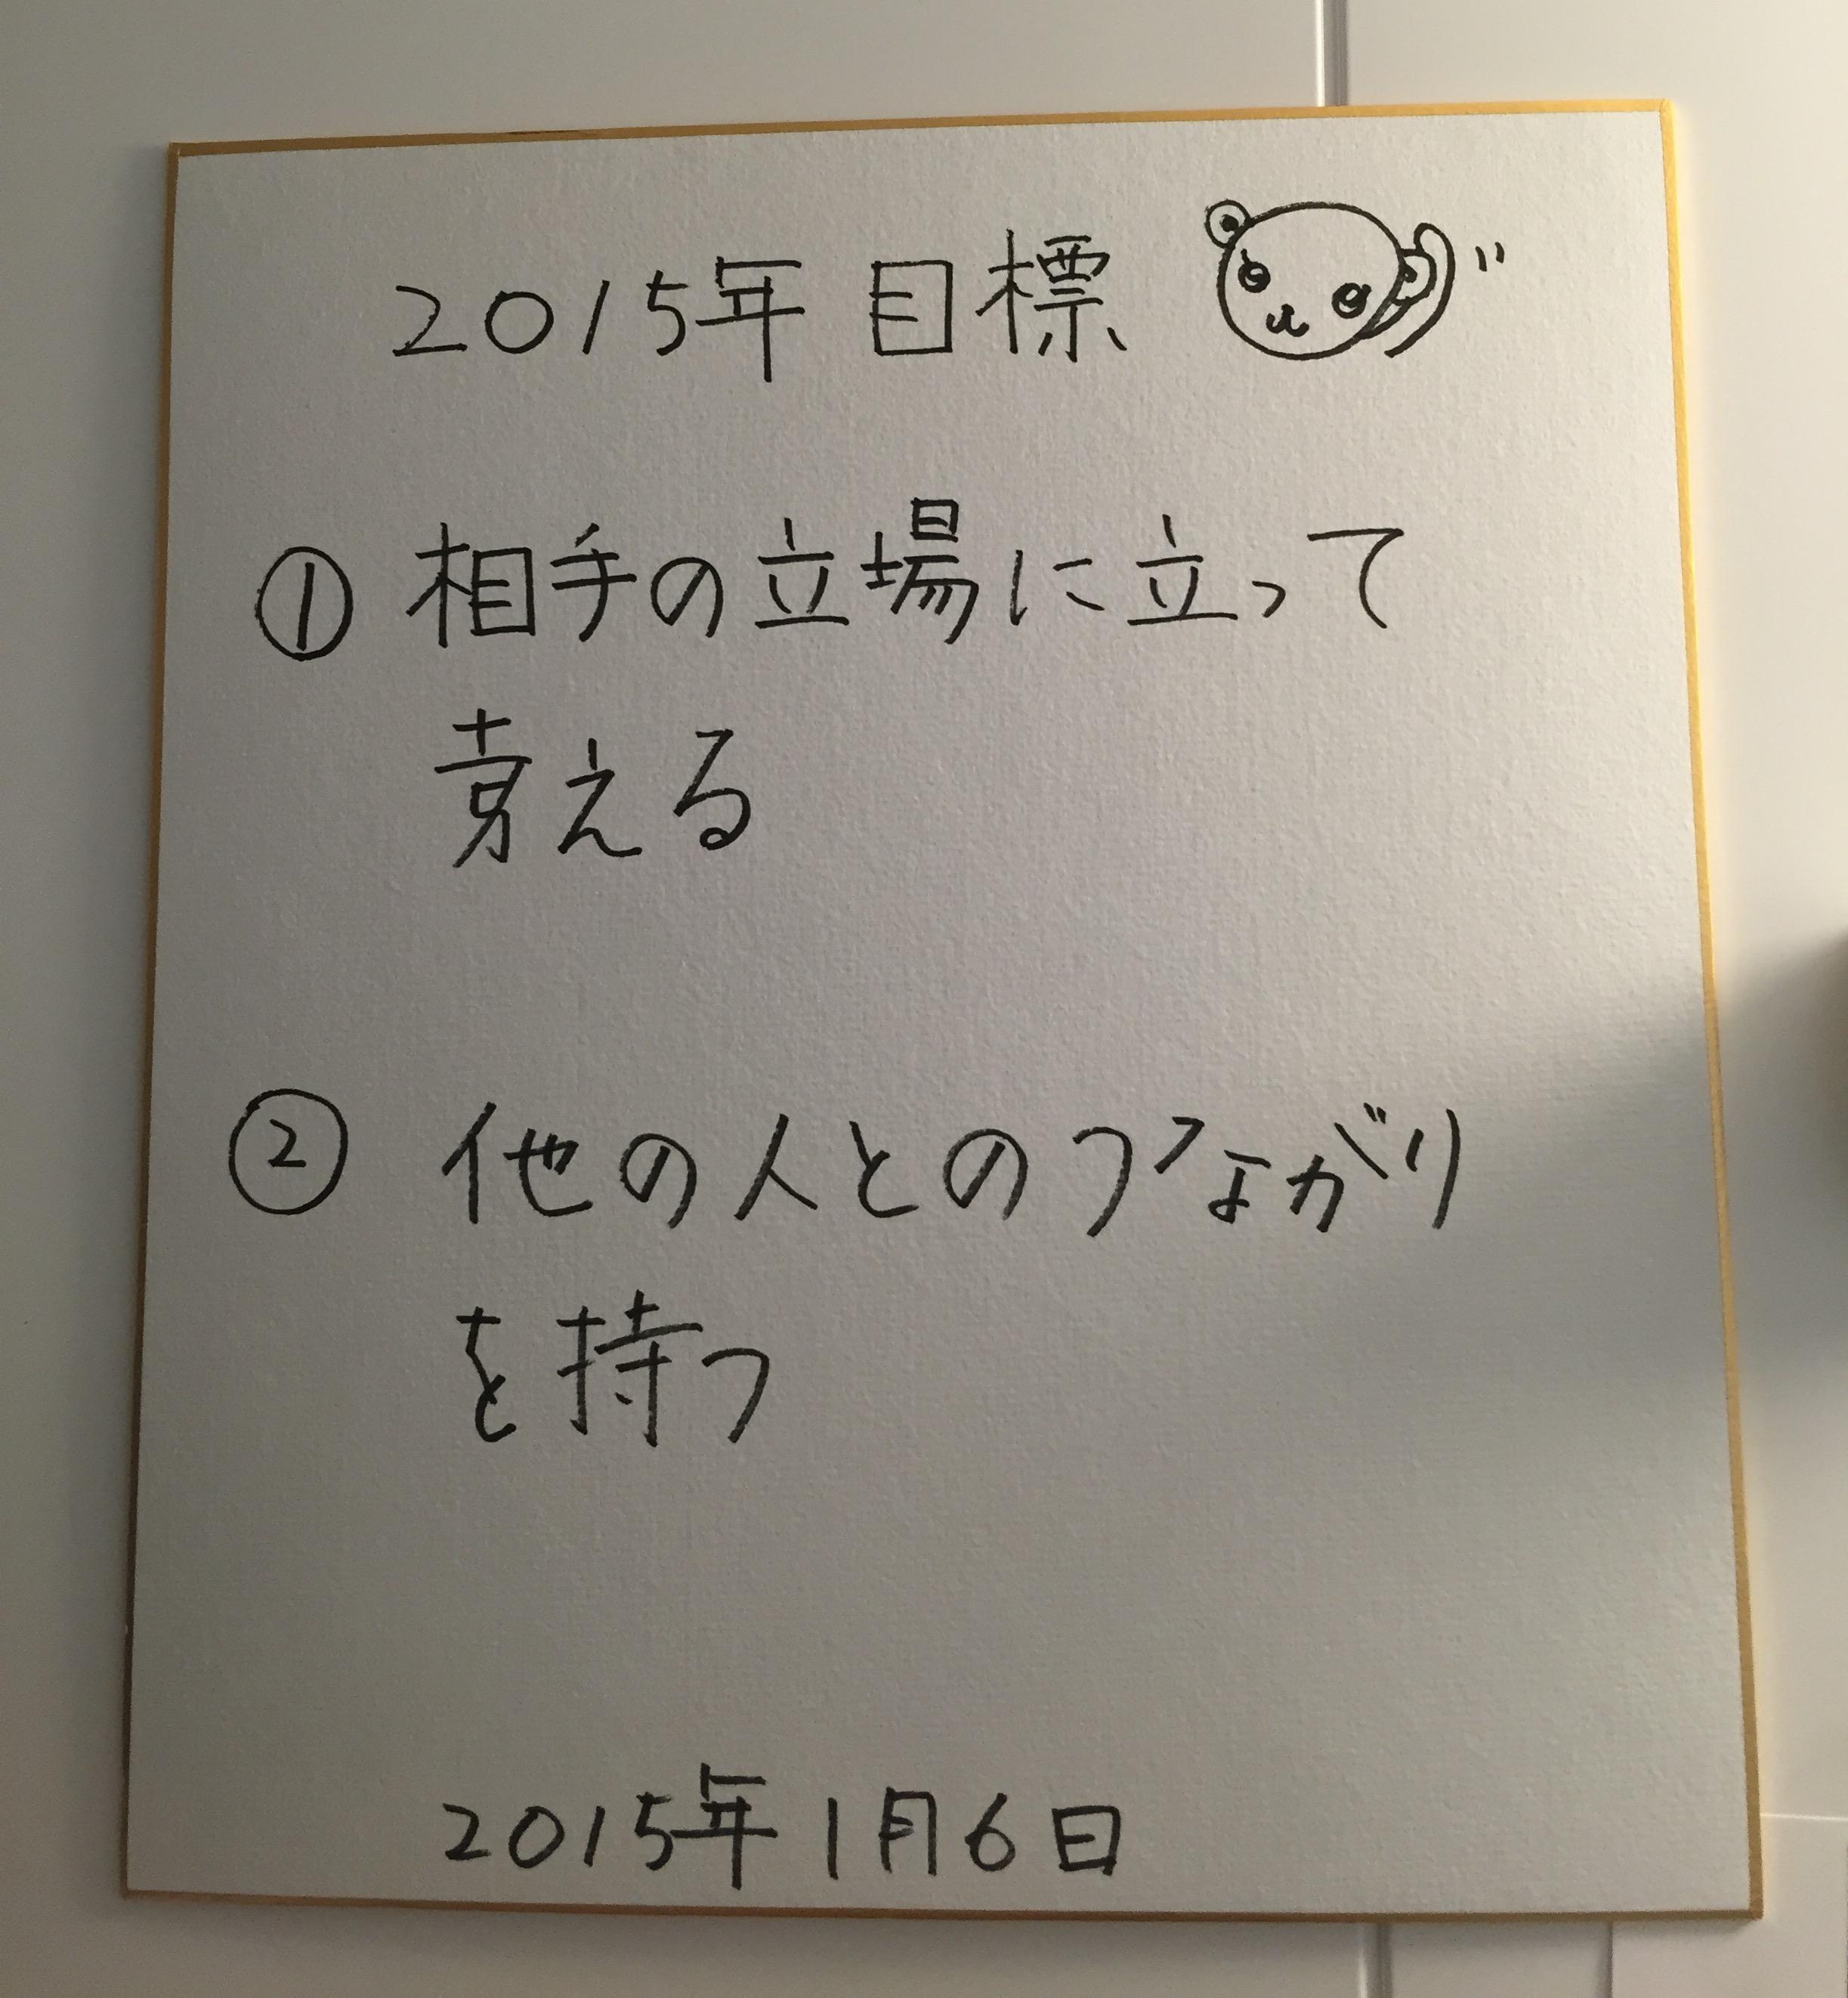 2015年 目標
① 相手の立場に立って
考える
② 他の人とのつながり
を持つ
2015年1月6日